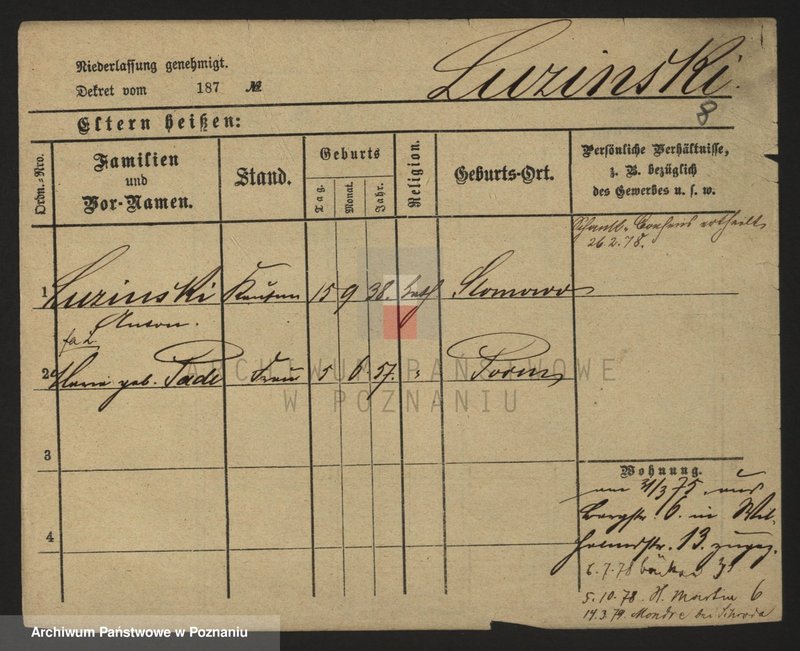 Niederlassung genehmigt.
Dekret vom 187 №
Luzinski.
8
Eltern heißen:
Ordn.-Nro.
Familien
und
Vor-Namen.
Stand.
Geburts
Tag.
Monat.
Jahr.
Religion.
Geburts-Ort.
Persönliche Verhältnisse,
z. B. bezüglich
des Gewerbes u. s. w.
Schank-Consens ertheilt
26.2.78.
1 Luzinski Kaufm 15 9 38. kath Slomowo
Anton.
2 geb. Frau 5 6 57. "
3
4
Wohnung.
am 31/3 75 aus
Bergstr. 6. in Wil-
helmstr. 13. zugez.
6.7.78
5.10.78. St. Martin 6
14.3.79. bei Schroda
ARCHIWUM PAŃSTWOWE
W POZNANIU
Archiwum Państwowe w Poznaniu